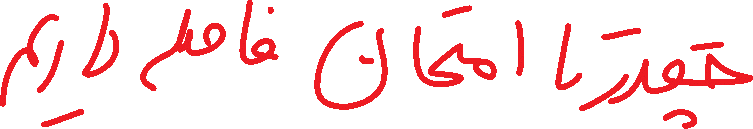 چقدر تا امتحان فاصله داریم